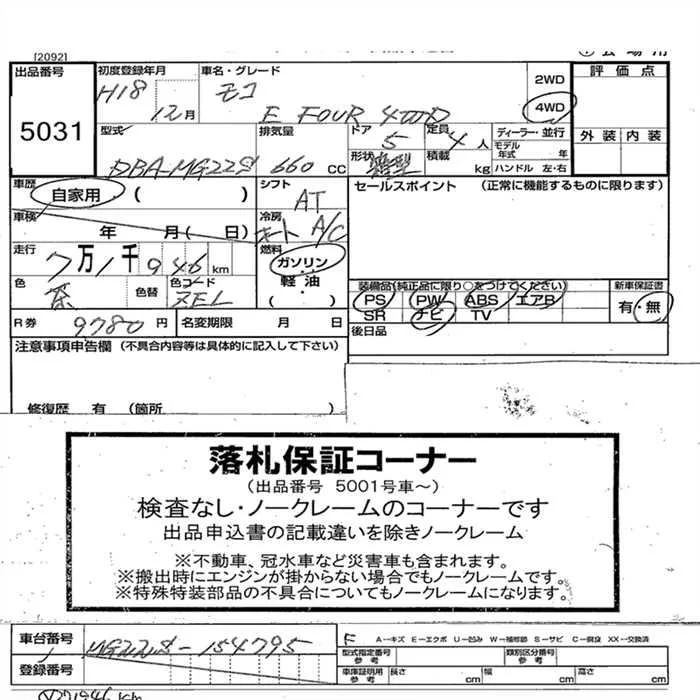 [2092]
出品番号
5031
初度登録年月
H18
12月
車名・グレード
モコ
E FOUR 4WD
2WD
4WD
評価点
外装 内装
型式
DBA-MG22S
排気量
660 CC
ドア
5
定員
4人
形状
箱型
積載
kg
ディーラー・並行
モデル年式 年
ハンドル 左・右
車歴
自家用 ( )
シフト
AT
セールスポイント (正常に機能するものに限ります)
車検
年 月( 日)
冷房
オートA/C
走行
7万1千946km
燃料
ガソリン
軽油
( )
色
茶
色替
色コード
ZEL
装備品(純正品に限り○をつけてください)
PS PW ABS エアB
SR ナビ TV
新車保証書
有・無
R券
9780円
名変期限 月 日
後日品
注意事項申告欄 (不具合内容等は具体的に記入して下さい)
修復歴 有 (箇所
落札保証コーナー
(出品番号 5001号車~)
検査なし・ノークレームのコーナーです
出品申込書の記載違いを除きノークレーム
※不動車、冠水車など災害車も含まれます。
※搬出時にエンジンが掛からない場合でもノークレームです。
※特殊特装部品の不具合についてもノークレームになります。
車台番号
MG22S-154795
登録番号
F
A-キズ E-エクボ U-凹み W-補修跡 S-サビ C-腐食 XX-交換済
型式指定番号
参考
類別区分番号
参考
車庫証明用
参考
長さ cm
幅 cm
高さ cm